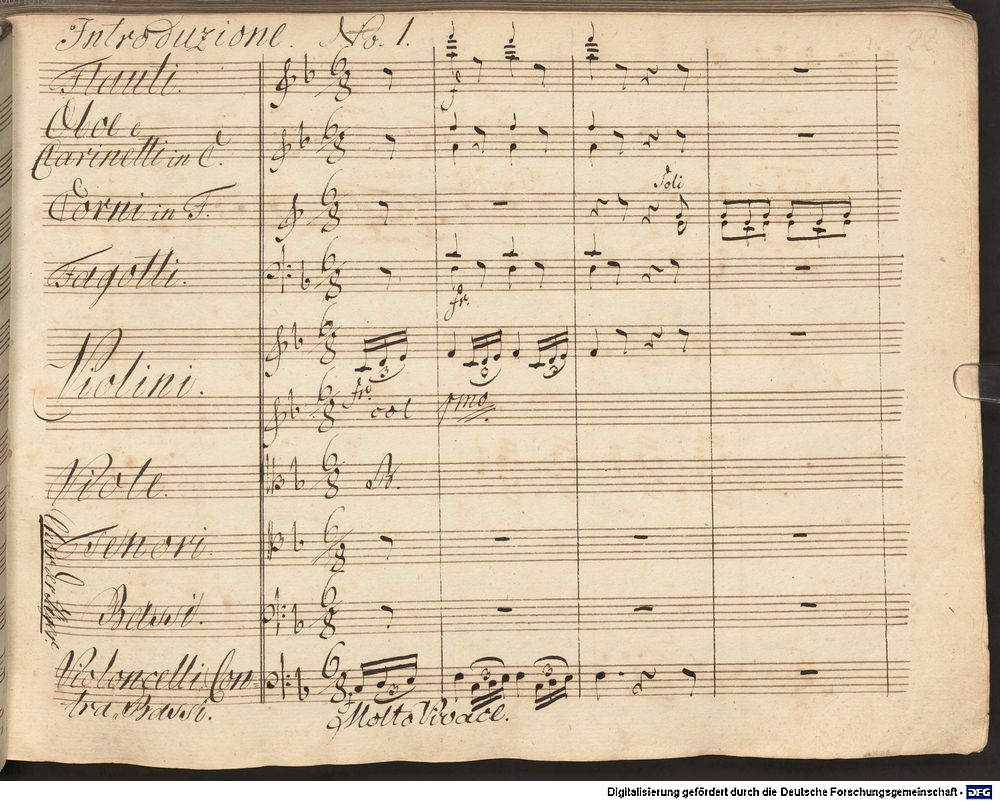 Introduzione. No. 1.
22
Flauti.
Oboe e
Clarinetti in C.
Corni in F.
Soli
Fagotti.
fr.
Violini.
fr.
col pmo
Viole.
B.
Tenori.
Bassi.
Violoncelli, Con-
tra, Bassi.
Molto Vivace.
Digitalisierung gefördert durch die Deutsche Forschungsgemeinschaft - DFG